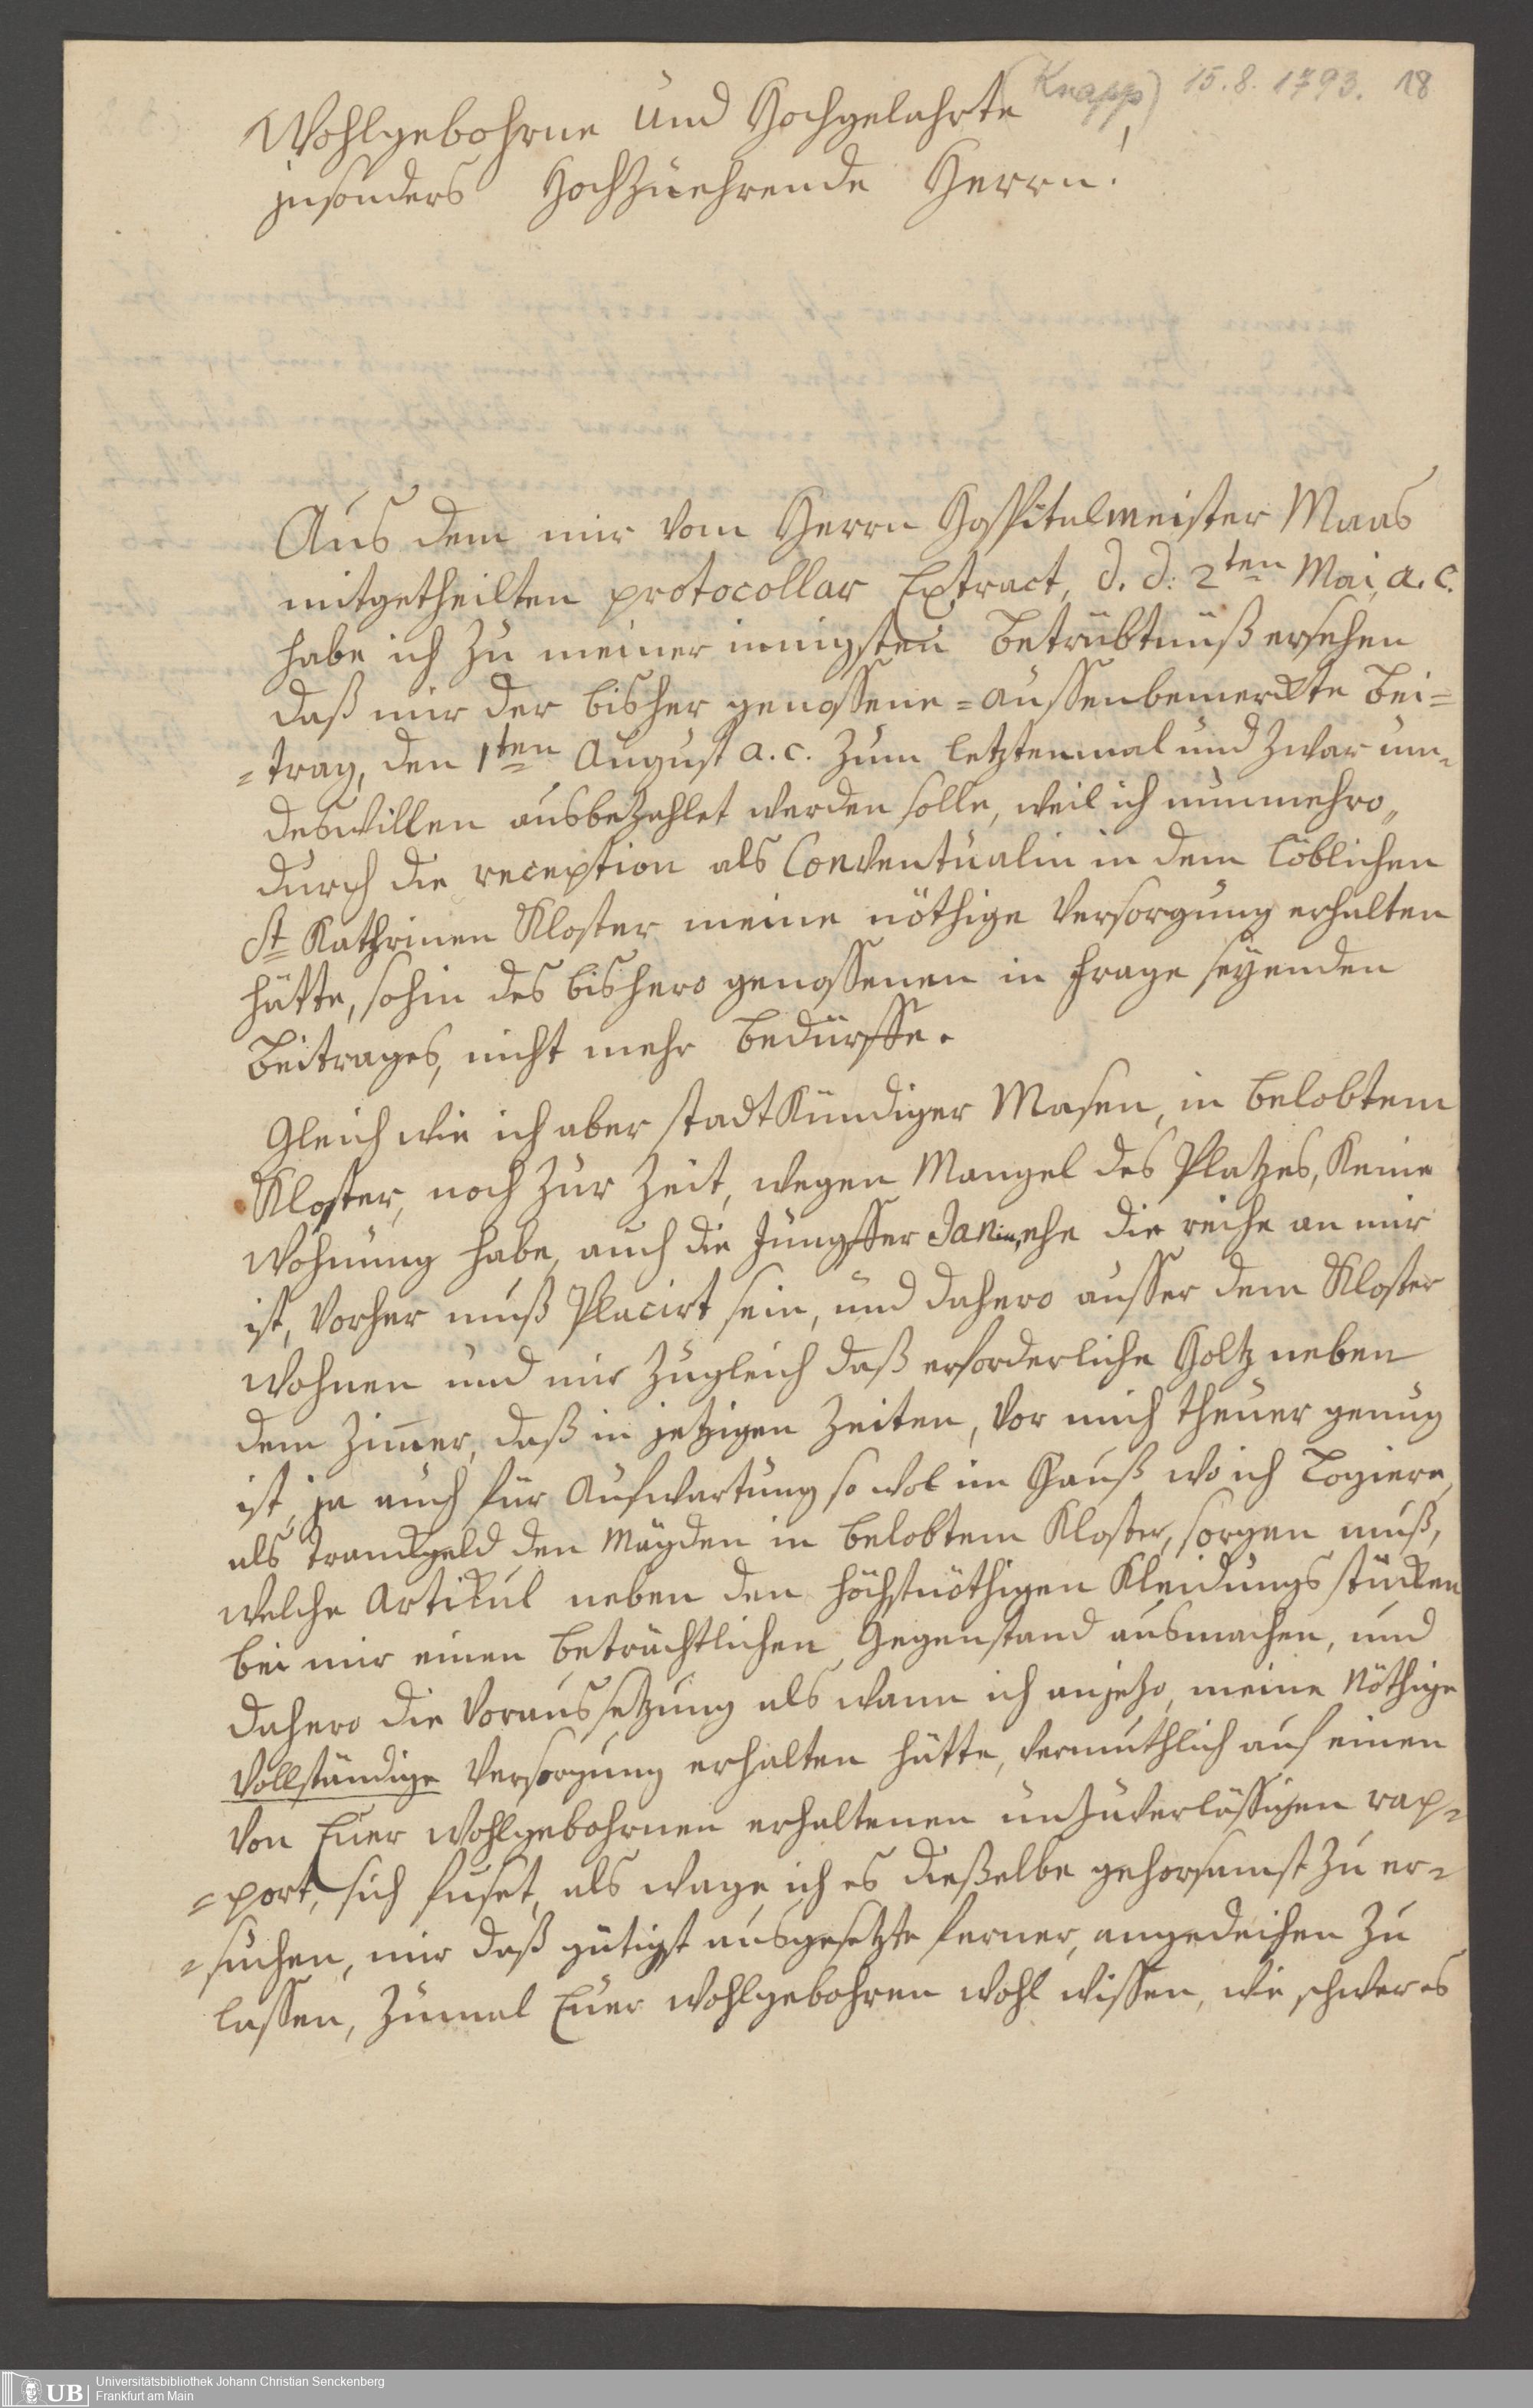 (Knapp) 15.8.1793. 18
Wohlgebohrne und Hochgelahrte
insonders Hochzuehrende Herrn!
Aus dem mir vom Herrn Hospitalmeister Maas
mitgetheilten protocollar Extract, d. d: 2ten Mai, a. c.
habe ich zu meiner innigsten Betrübtnüß ersehen
daß mir der bisher genossene=aussenbemerckte Bei=
=trag, den 1ten August a. c. zum letztenmal und zwar um=
deswillen ausbezahlet werden solle, weil ich nunmehro„
durch die reception als Conventualin in dem löblichen
St Kathrinen Kloster meine nöthige Versorgung erhalten
hätte, sohin des bishero genossenen in Frage seyenden
Beitrages, nicht mehr bedürffe.
Gleich wie ich aber stadtkündiger Masen, in belobtem
Kloster, noch zur Zeit, wegen Mangel des Platzes, keine
Wohnung habe, auch die Jungffer Janin, ehe die reihe an mir
ist, vorher muß Placirt sein, und dahero ausser dem Kloster
wohnen und mir zugleich daß erforderliche Holtz neben
dem Zimer, daß in jetzigen Zeiten, vor mich theuer genug
ist, ja auch für Aufwartung so wol im Hauß wo ich Logiere,
als Tranckgeld den Mägden in belobtem Kloster, sorgen muß,
welche Artikul neben den höchstnöthigen Kleidungs stücken
bei mir einen beträchtlichen Gegenstand ausmachen, und
dahero die Voraussetzung als wann ich anjetzo, meine Nöthige
Vollständige Versorgung erhalten hätte, vermuthlich auf einen
von Euer Wohlgebohrnen erhaltenen unzuverlässigen rap=
=port, sich fuset, als wage ich es dießelbe gehorsamst zu er=
=suchen, mir daß gütigst ausgesetzte ferner, angedeihen zu
lassen, zumal Euer Wohlgebohren wohl wissen, wie schwer es
UB Universitätsbibliothek Johann Christian Senckenberg
Frankfurt am Main